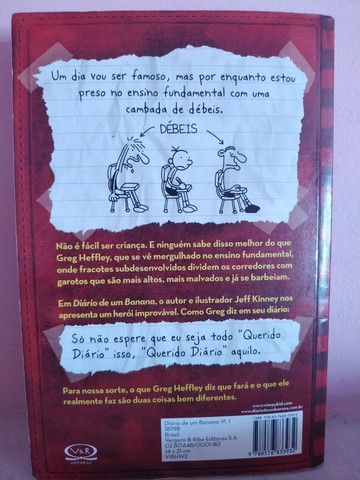 Um dia vou ser famoso, mas por enquanto estou
preso no ensino fundamental com uma
cambada de débeis.
DÉBEIS
Não é fácil ser criança. E ninguém sabe disso melhor do que
Greg Heffley, que se vê mergulhado no ensino fundamental,
onde fracotes subdesenvolvidos dividem os corredores com
garotos que são mais altos, mais malvados e já se barbeiam.
Em Diário de um Banana, o autor e ilustrador Jeff Kinney nos
apresenta um herói improvável. Como Greg diz em seu diário:
Só não espere que eu seja todo "Querido
Diário" isso, "Querido Diário" aquilo.
Para nossa sorte, o que Greg Heffley diz que fará e o que ele
realmente faz são duas coisas bem diferentes.
www.wimpykid.com
www.diariodeumbanana.com.br
V&R
EDITORAS
Diário de um Banana Vl. 1
18798
Brasil
Vergara & Riba Editoras S.A.
14 x 21 cm
VIRHW2
9 788576 833932